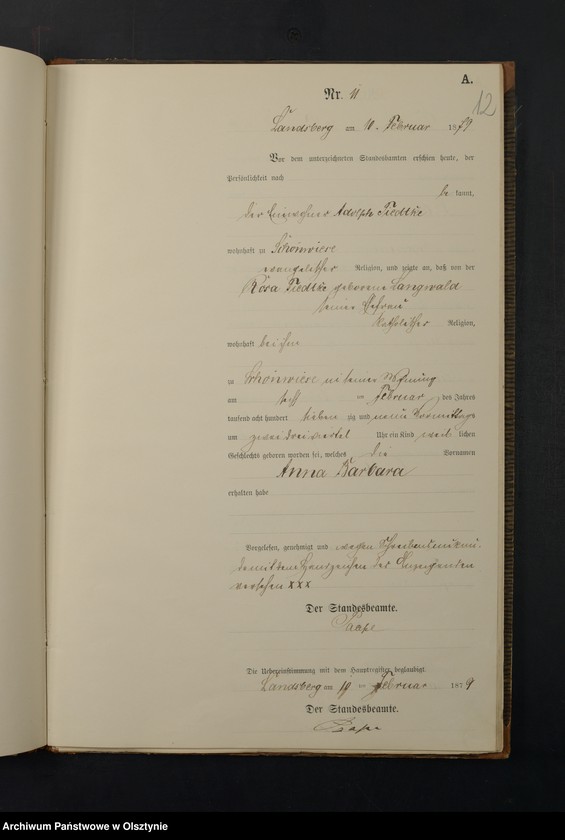 A.
12
Nr. 11
Landsberg am 10. Februar 1879
Vor dem unterzeichneten Standesbeamten erschien heute, der
Persönlichkeit nach
be kannt,
der Einwohner Adolph Tiedtke
wohnhaft zu Schönwiese
evangelischer Religion, und zeigte an, daß von der
Rosa Tiedtke geborene Langwald
seiner Ehefrau
katholischer Religion,
wohnhaft bei ihm
zu Schönwiese in seiner Wohnung
am Februar des Jahres
tausend acht hundert sieben zig und neun Vormittags
um zwei dreiviertel Uhr ein Kind weib lichen
Geschlechts geboren worden sei, welches die Vornamen
Anna Barbara
erhalten habe
Vorgelesen, genehmigt und wegen
mit dem Handzeichen des Anzeigenden
versehen xxx
Der Standesbeamte.
Die Uebereinstimmung mit dem Hauptregister beglaubigt.
Landsberg am 10 ten Februar 1879
Der Standesbeamte.
Archiwum Państwowe w Olsztynie